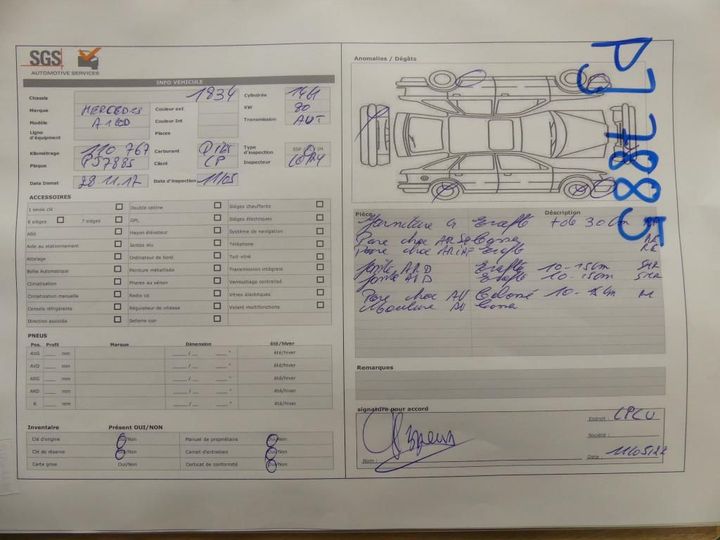 SGS
AUTOMOTIVE SERVICES
INFO VÉHICULE
Chassis 1834 Cylindrée 1461
Marque MERCEDES Couleur ext KW 80
Modèle A 180D Couleur int Transmission AUT
Ligne d'équipement Places
Kilométrage 110 767 Carburant Type d'inspection
Plaque PJ7885 Client CP Inspecteur
Date Immat 28 11.17 Date d'inspection 11/05
ACCESSOIRES
1 seule clé Double cabine Sièges chauffants
5 sièges 7 sièges GPL Sièges électriques
ABS Hayon élévateur Système de navigation
Aide au stationnement Jantes alu Téléphone
Attelage Ordinateur de bord Toit vitré
Boîte Automatique Peinture métallisée Transmission intégrale
Climatisation Phares au xénon Verrouillage centralisé
Climatisation manuelle Radio cd Vitres électriques
Console réfrigérante Régulateur de vitesse Volant multifonctions
Direction assistée Sellerie cuir
PNEUS
Pos. Profil Marque Dimension été/hiver
AVG mm / " été/hiver
AVD mm / " été/hiver
ARG mm / " été/hiver
ARD mm / " été/hiver
R mm / " été/hiver
Inventaire Présent OUI/NON
Clé d'origine Oui/Non Manuel de propriétaire Oui/Non
Clé de réserve Oui/Non Carnet d'entretien Oui/Non
Carte grise Oui/Non Certicat de conformité Oui/Non
Anomalies / Dégâts
PJ 7885
Pièce Description
G Griffe + de 30 cm
Pare choc
Pare choc Griffe
Jante ARD Griffe 10-15cm
Jante AVD Griffe 10-15cm
Pare choc AV 10-15cm
AV
Remarques
signature pour accord
Endroit : CPCU
Société :
Nom : Date : 11/05/22